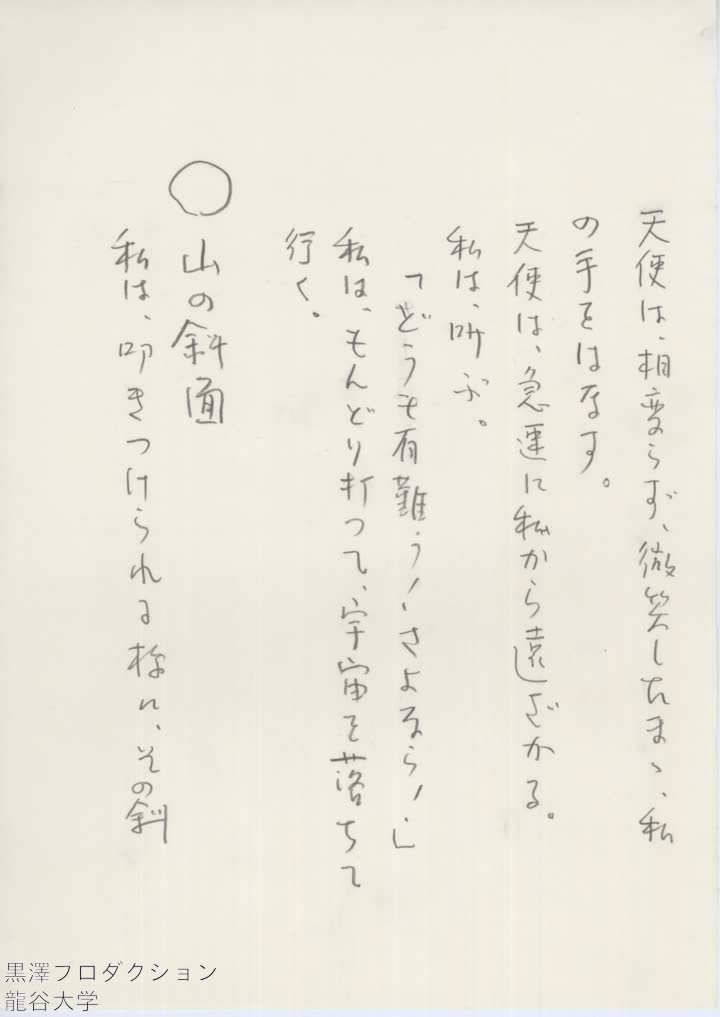 天使は、相変らず、微笑したまゝ、私
の手をはなす。
天使は、急速に私から遠ざかる。
私は、叫ぶ。
「どうも有難う！さよなら！」
私は、もんどり打って、宇宙を落ちて
行く。
○山の斜面
私は、叩きつけられる様に、その斜
黒澤プロダクション
龍谷大学